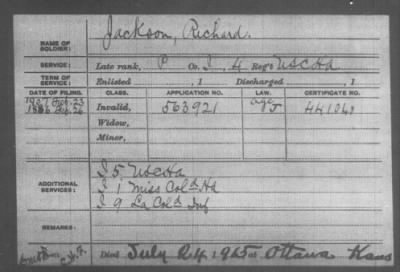 NAME OF SOLDIER: Jackson, Richard.
SERVICE: Late rank, P Co. I, 4 Reg't USCHa
TERM OF SERVICE: Enlisted , 1 Discharged , 1
DATE OF FILING. CLASS. APPLICATION NO. LAW. CERTIFICATE NO.
Invalid, 563,921
Widow,
Minor,
ADDITIONAL SERVICES: I 5 USCHa
I 1 Miss Cold Ha
I 9 La Cold Inf
REMARKS:
Died July 24, 1925 at Ottawa Kans